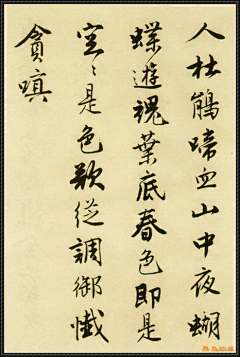 人杜鹃啼血山中夜蝴
蝶遊魂葉底春色即是
空〻是色欲從調御懴
貪嗔